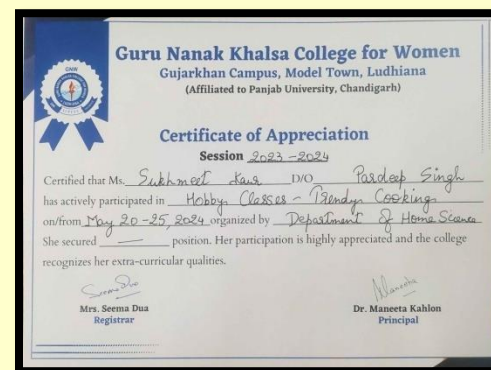 Guru Nanak Khalsa College for Women
Gujarkhan Campus, Model Town, Ludhiana
(Affiliated to Panjab University, Chandigarh)
Certificate of Appreciation
Session 2023-2024
Certified that Ms. Sukhmeet Kaur D/O Pardeep Singh
has actively participated in Hobby Classes - Trendy Cooking
on/from May 20-25, 2024 organized by Department of Home Science
She secured — position. Her participation is highly appreciated and the college
recognizes her extra-curricular qualities.
Seema Dua
Maneeta
Mrs. Seema Dua
Dr. Maneeta Kahlon
Registrar
Principal